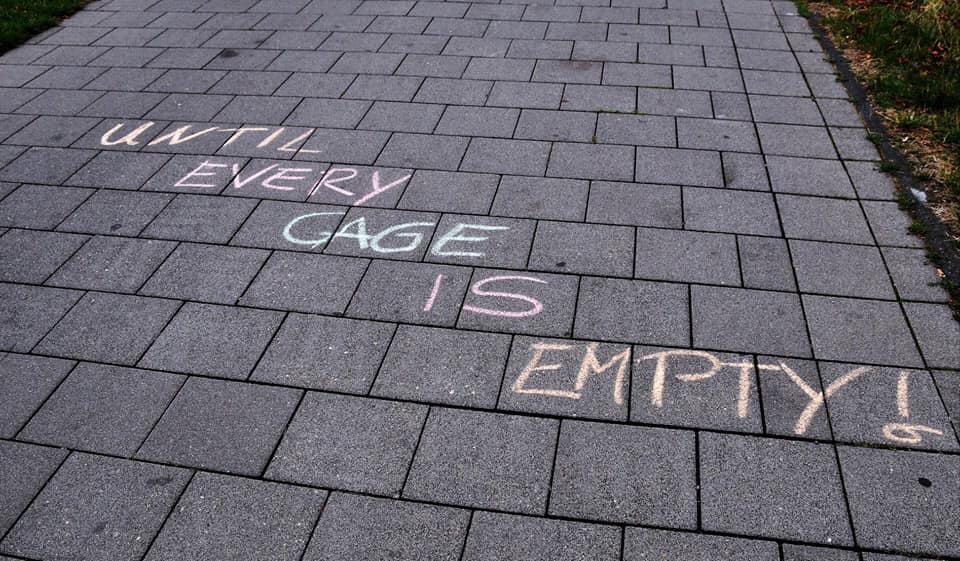 UNTIL
EVERY
CAGE
IS
EMPTY!